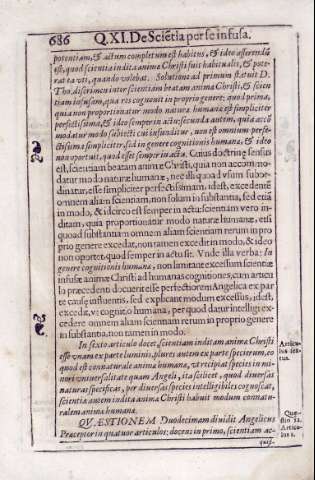 686 Q.XI. De Sciẽtia per se infusa.
potentiam, & actum completum est habitus, & ideo asserendũ
est, quod scientia indita animæ Christi fuit habitualis, & pote-
rat ea vti, quando volebat. Solutione ad primum statuit D.
Tho. discrimen inter scientiam beatam animæ Christi, & scien
tiam infusam, qua res cognouit in proprio genere: quod prima,
quia non proportionatur modo naturæ humanæ est simpliciter
perfectissima, & ideo semper in actu: secunda autem, quia accõ
modatur modo subiecti cui infunditur, non est omnium perfe-
ctissima simpliciter, sed in genere cognitionis humanæ, & ideo
non oportuit, quod esset semper in actu. Cuius doctrinæ sensus
est, scientiam beatam animæ Christi, quia non accommo-
datur modo naturæ humanæ, nec illi quoad vsum subor-
dinatur, esse simpliciter perfectissimam, idest, excedentẽ
omnem aliam scientiam, non solum in substantia, sed etiã
in modo, & idcirco est semper in actu: scientiam vero in-
ditam, quia proportionatur modo naturæ humanæ, etsi
quoad substantiam omnem aliam scientiam rerum in pro
prio genere excedat, non tamen excedit in modo, & ideo
non oportet quod semper in actu sit. Vnde illa verba: In
genere cognitionis humanæ, non limitant excessum scientiæ
infusæ animæ Christi ad humanas cognitiones, cum articu
lo præcedenti docuerit esse perfectiorem Angelica ex par
te causæ influentis, sed explicant modum excessus, idest,
excedit, vt cognitio humana, per quod datur intelligi ex-
cedere omnem aliam scientiam rerum in proprio genere
in substantia, non tamen in modo.
In sexto articulo docet, scientiam inditam animæ Christi
esse vnam ex parte luminis, plures autem ex parte specierum, eo
quod est connaturale animæ humanæ, vt recipiat species in mi-
nori vniuersalitate quam Angeli, ita scilicet, quod diuersas
naturas specificas, per diuersas species intelligibiles cognoscat,
scientia autem indita animæ Christi habuit modum connatu-
ralem animæ humanæ.
QVÆSTIONEM Duodecimam diuidit Angelicus
Præceptor in quatuor articulos: docens in primo, scientiam ac-
quisi-
Articu-
lus sex-
tus.
Quæ-
stio 12.
Articu-
lus 1.